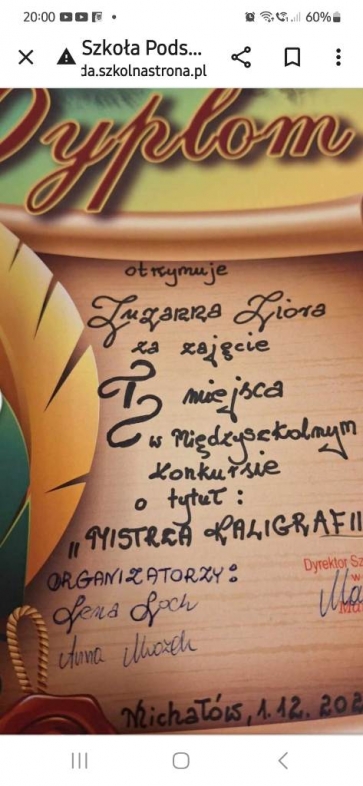 20:00
60%
Szkoła Pods...
da.szkolnastrona.pl
Dyplom
otrzymuje
Zuzanna Ziora
za zajęcie
miejsca
w Międzyszkolnym
Konkursie
o tytuł:
„MISTRZA KALIGRAFII
ORGANIZATORZY:
Dyrektor Sz
w
Anna Mrozek
Michałów, 1.12.202